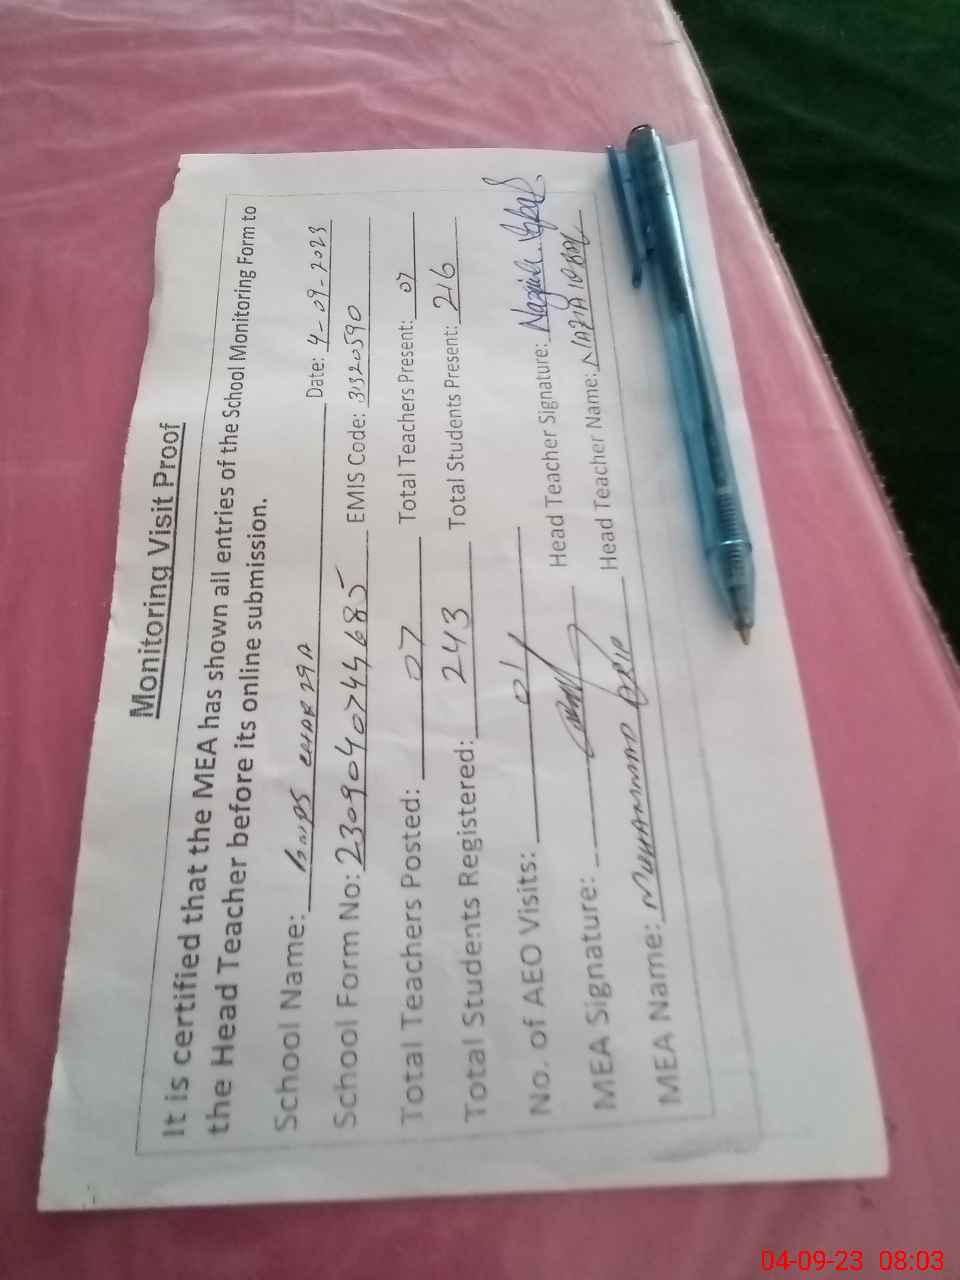 Monitoring Visit Proof
It is certified that the MEA has shown all entries of the School Monitoring Form to
the Head Teacher before its online submission.
School Name: GGPS CHAK 29A Date: 4-09-2023
School Form No: 2309040744685 EMIS Code: 31320590
Total Teachers Posted: 07 Total Teachers Present: 07
Total Students Registered: 243 Total Students Present: 216
No. of AEO Visits: 01
MEA Signature: Head Teacher Signature: Nazia Iqbal
MEA Name: MUHAMMAD ASIF Head Teacher Name: NAZIA IQBAL
04-09-23 08:03